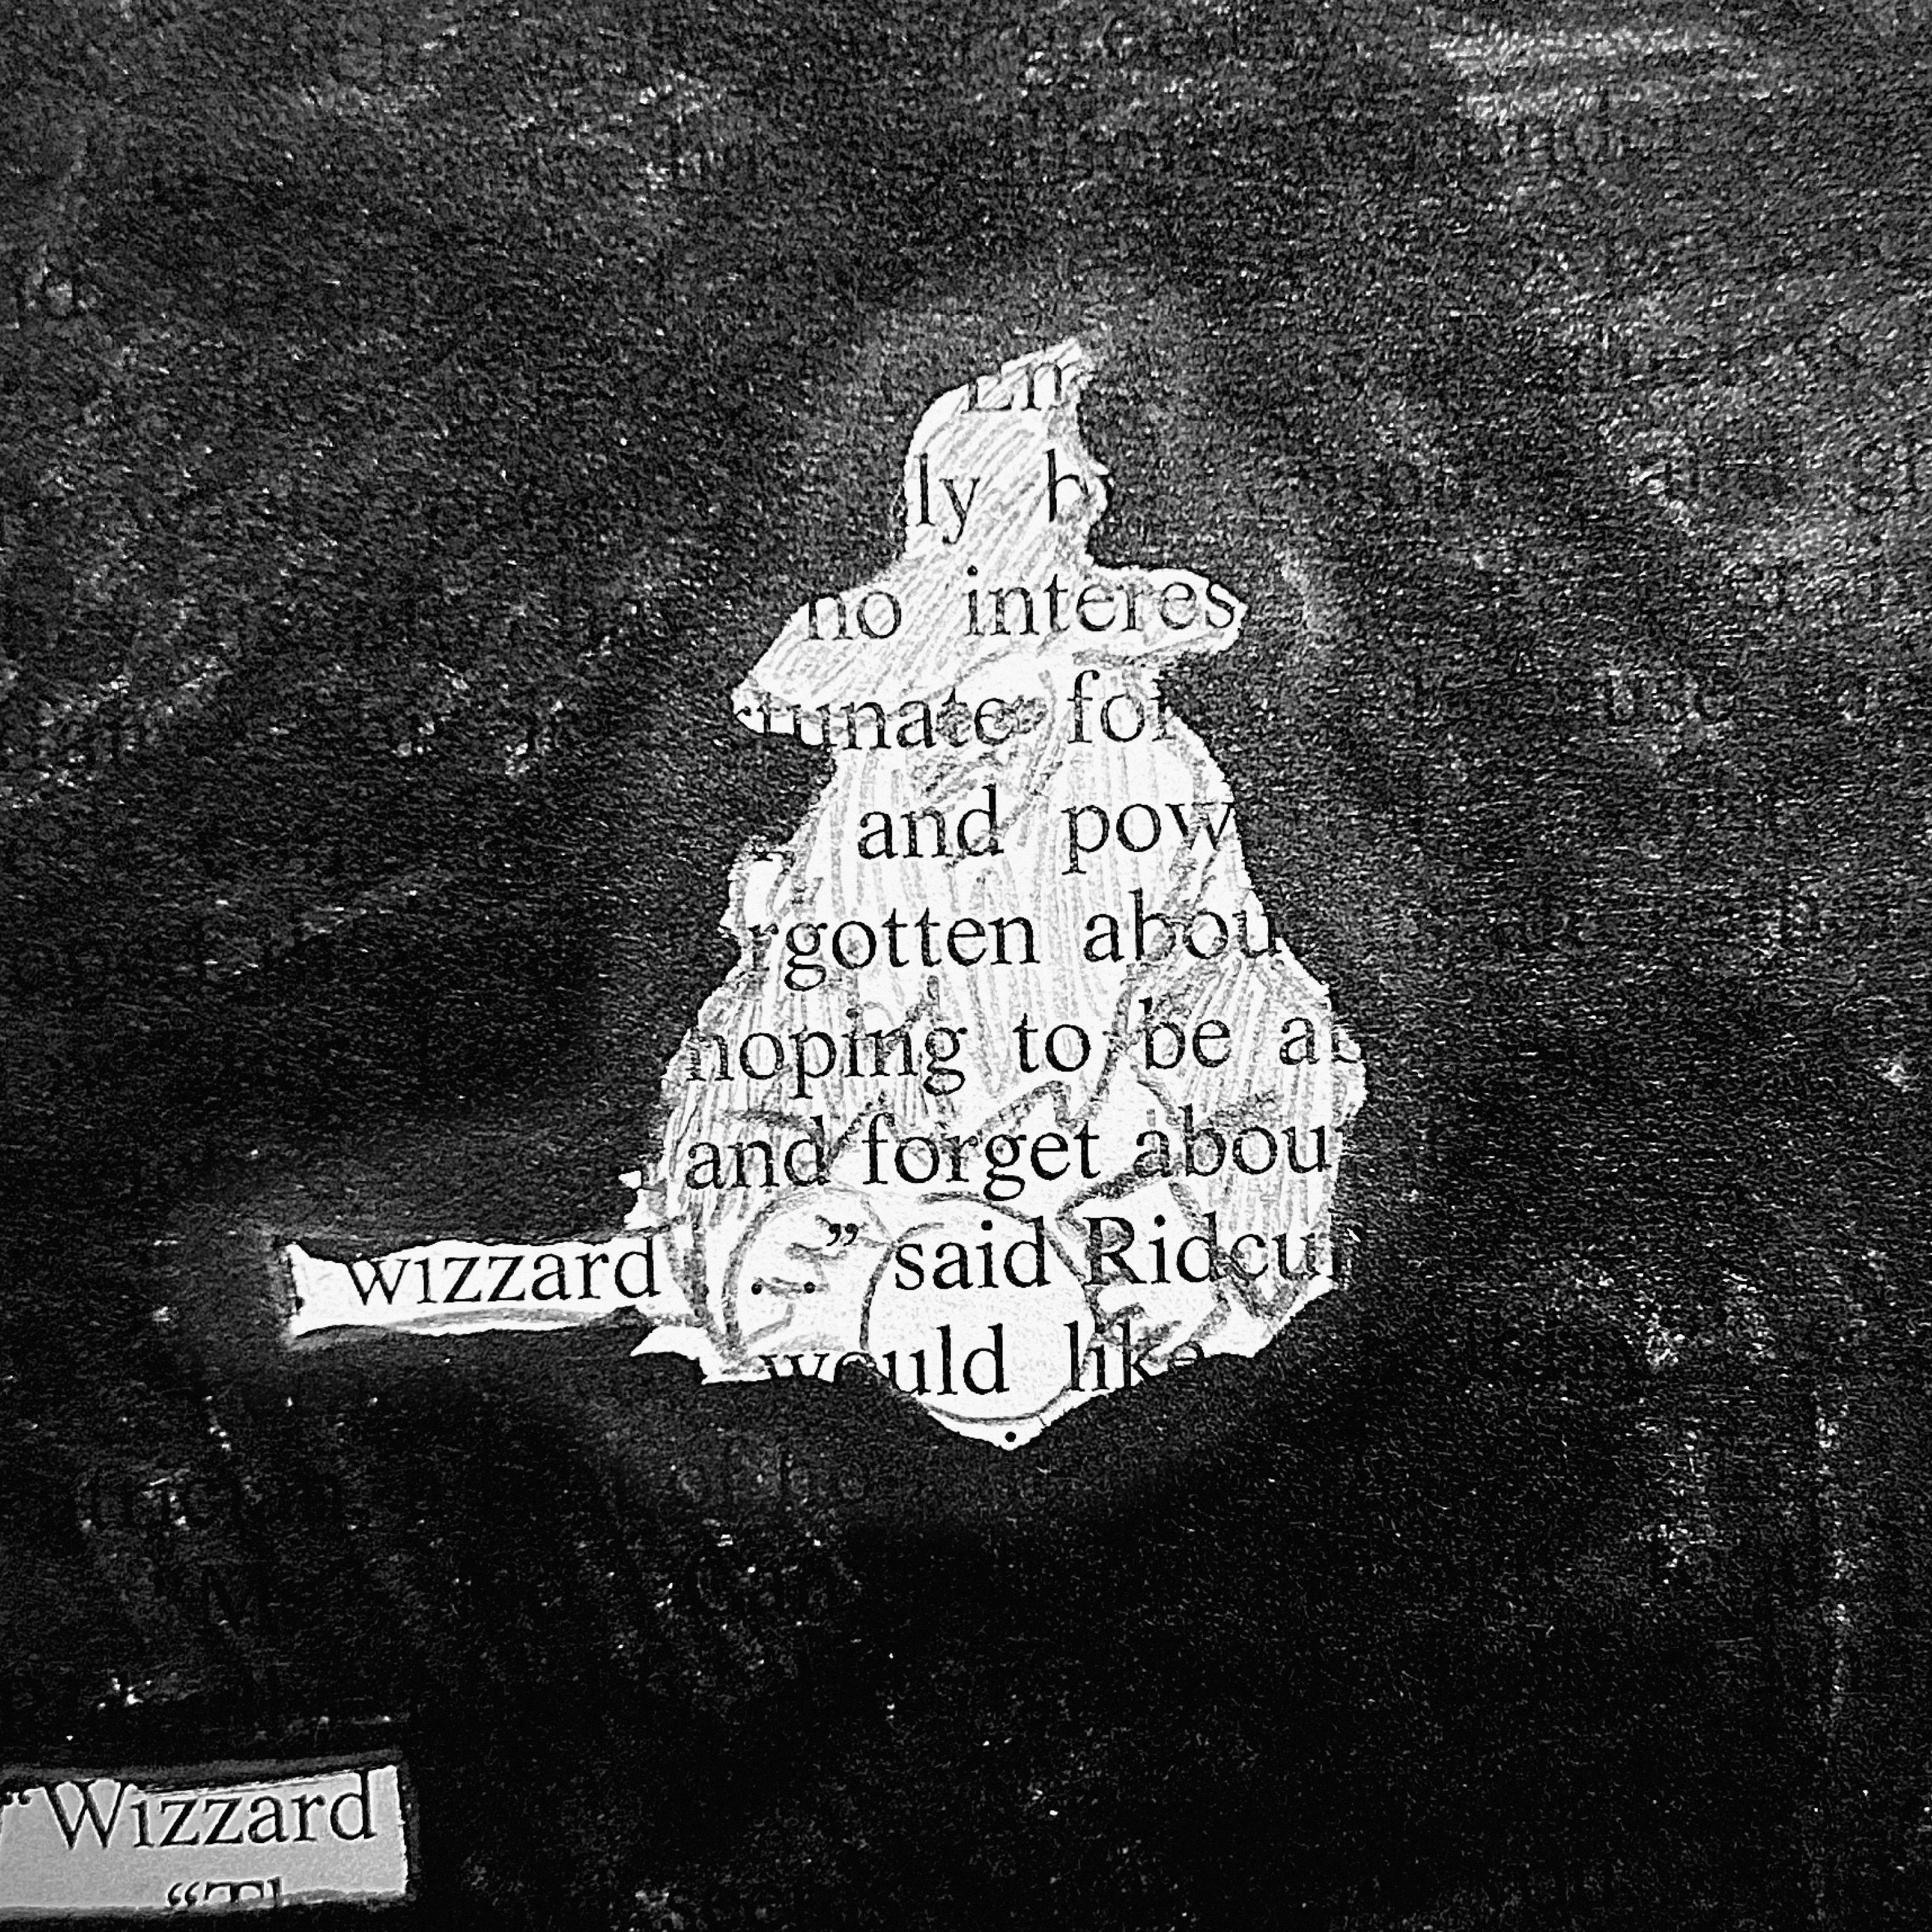 ly b
no interes
nate for
and pow
rgotten abou
hoping to be as
and forget abou
wizzard ..." said Ridcul
would like
"Wizzard